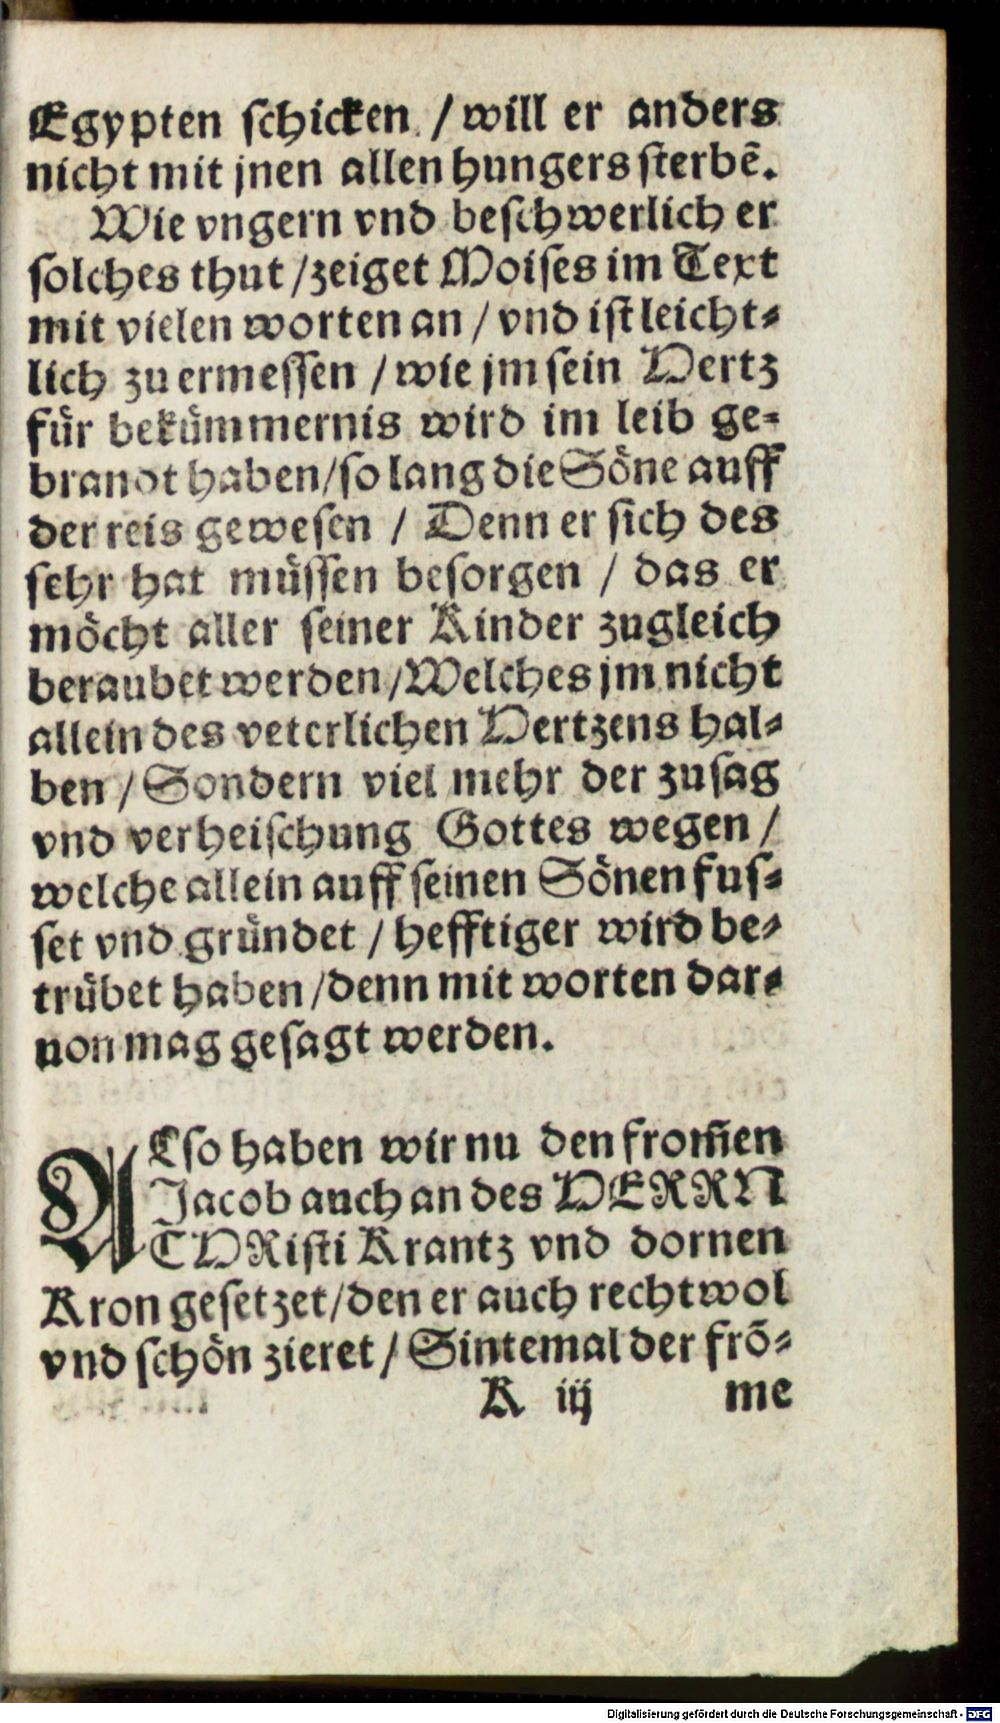 Egypten schicken / will er anders
nicht mit jnen allen hungers sterbē.
Wie vngern vnd beschwerlich er
solches thut / zeiget Moises im Text
mit vielen worten an / vnd ist leicht⸗
lich zu ermessen / wie jm sein Hertz
für bekümmernis wird im leib ge⸗
brandt haben / so lang die Söne auff
der reis gewesen / Denn er sich des
sehr hat müssen besorgen / das er
möcht aller seiner Kinder zugleich
beraubet werden / Welches jm nicht
allein des veterlichen Hertzens hal⸗
ben / Sondern viel mehr der zusag
vnd verheischung Gottes wegen /
welche allein auff seinen Sönen fus⸗
set vnd gründet / hefftiger wird be⸗
trübet haben / denn mit worten dar⸗
uon mag gesagt werden.
ALso haben wir nu den from̃en
Jacob auch an des HERRN
CHRisti Krantz vnd dornen
Kron gesetzet / den er auch recht wol
vnd schön zieret / Sintemal der frō⸗
K iij me
Digitalisierung gefördert durch die Deutsche Forschungsgemeinschaft - DFG